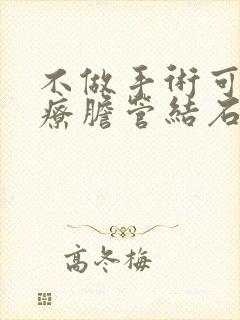 不做手術可
療膽管結石
高冬梅